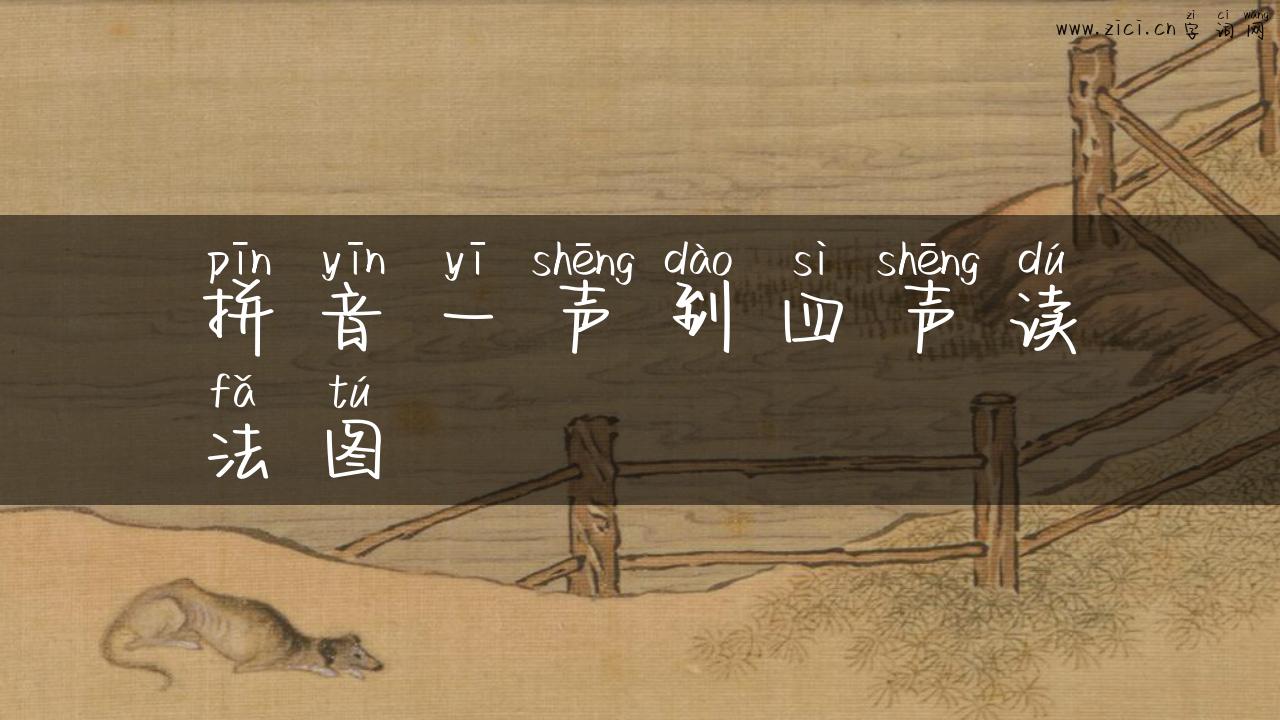 zì cí wǎng
www.zici.cn 字词网
pīn yīn yī shēng dào sì shēng dú
拼音一声到四声读
fǎ tú
法图